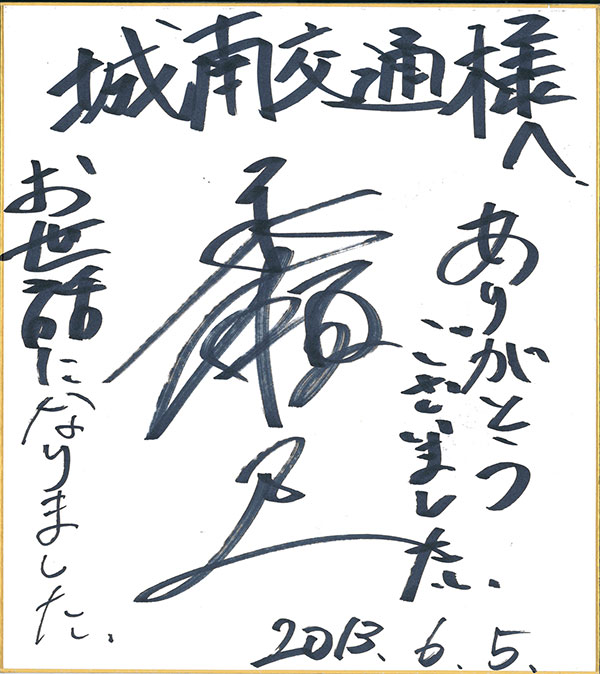 城南交通様へ
ありがとう
ございました。
お世話になりました。
2013.6.5.